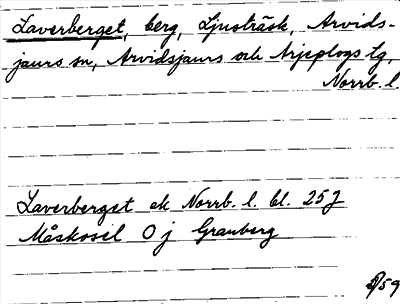 Laverberget, berg, Ljusträsk, Arvids-
jaurs sn, Arvidsjaurs och Arjeplogs tg,
Norrb. l.
Laverberget ek Norrb. l. bl. 25 J
Måskosel O j Granberg
59